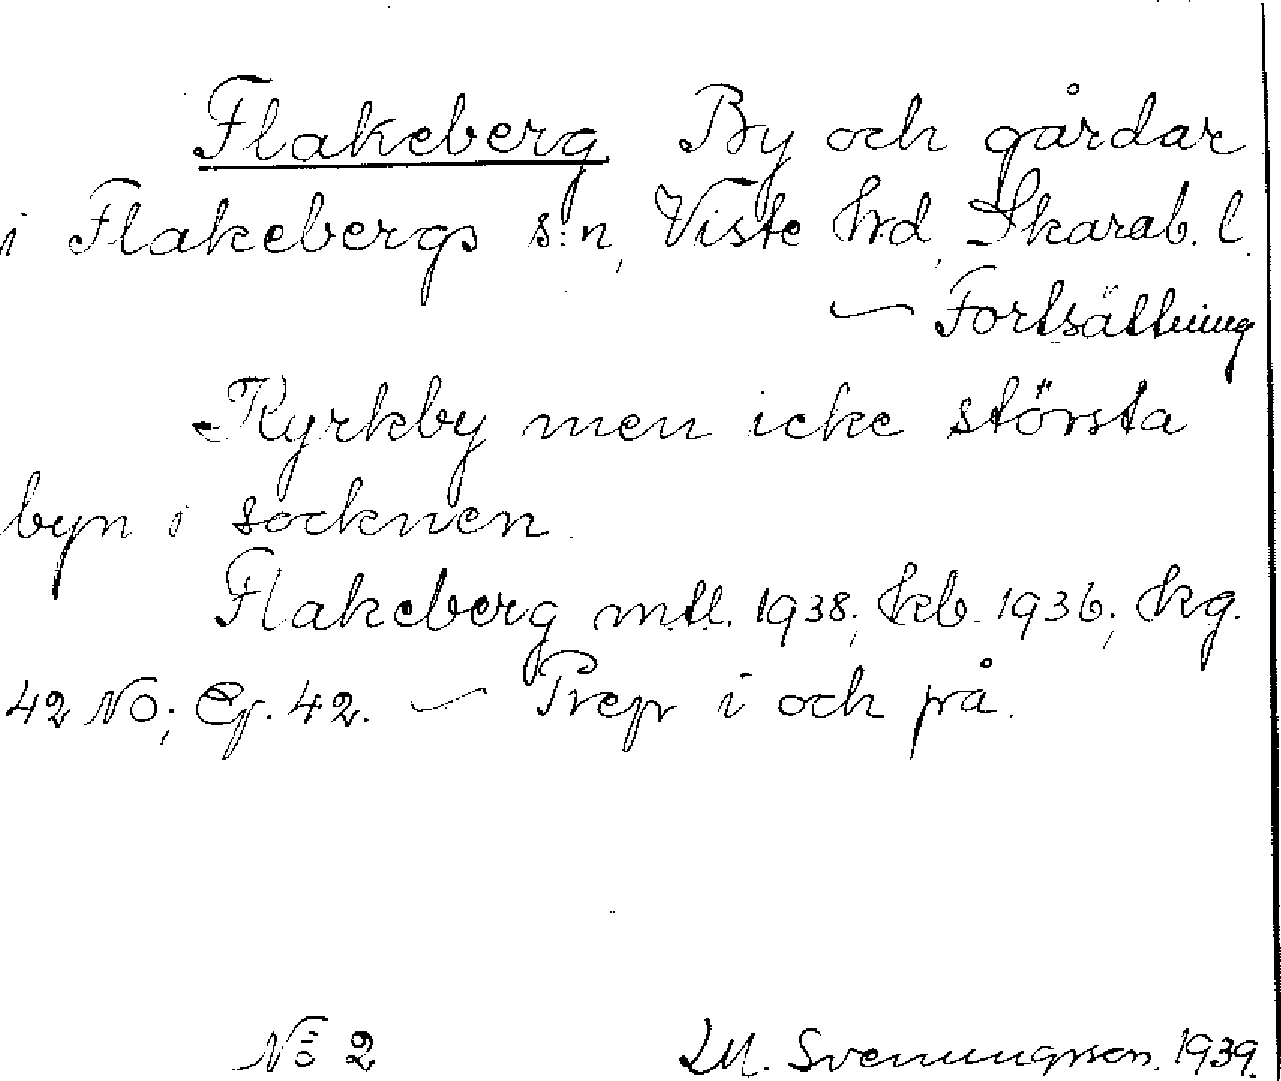 Flakeberg By och gårdar
i Flakebergs s:n, Viste hrd, Skarab. l.
— Fortsättning
Kyrkby men icke största
byn i socknen.
Flakeberg mtl. 1938; kb. 1936; kg.
42 NO; Ep. 42. — Prep i och på.
No 2 Svenungsson. 1939.